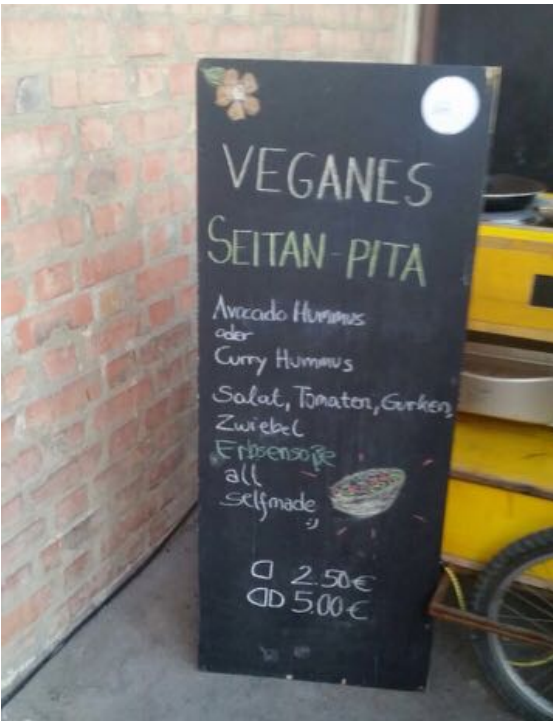 VEGANES
SEITAN-PITA
Avocado Hummus
oder
Curry Hummus
Salat, Tomaten, Gurken,
Zwiebel
Erbsensoße
all
selfmade
;)
2.50€
5.00€